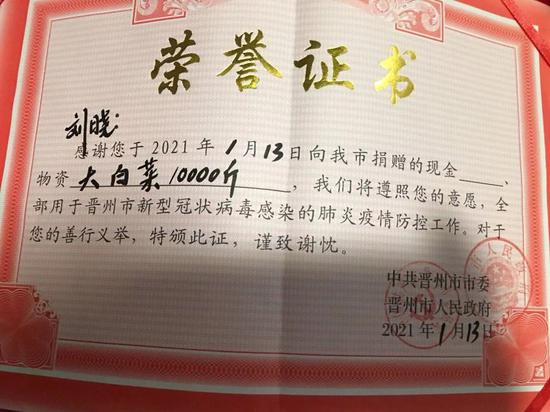 荣誉证书
刘晓:
感谢您于2021年1月13日向我市捐赠的现金____、
物资大白菜10000斤____,我们将遵照您的意愿,全
部用于晋州市新型冠状病毒感染的肺炎疫情防控工作。对于
您的善行义举,特颁此证,谨致谢忱。
中共晋州市市委
晋州市人民政府
2021年1月13日